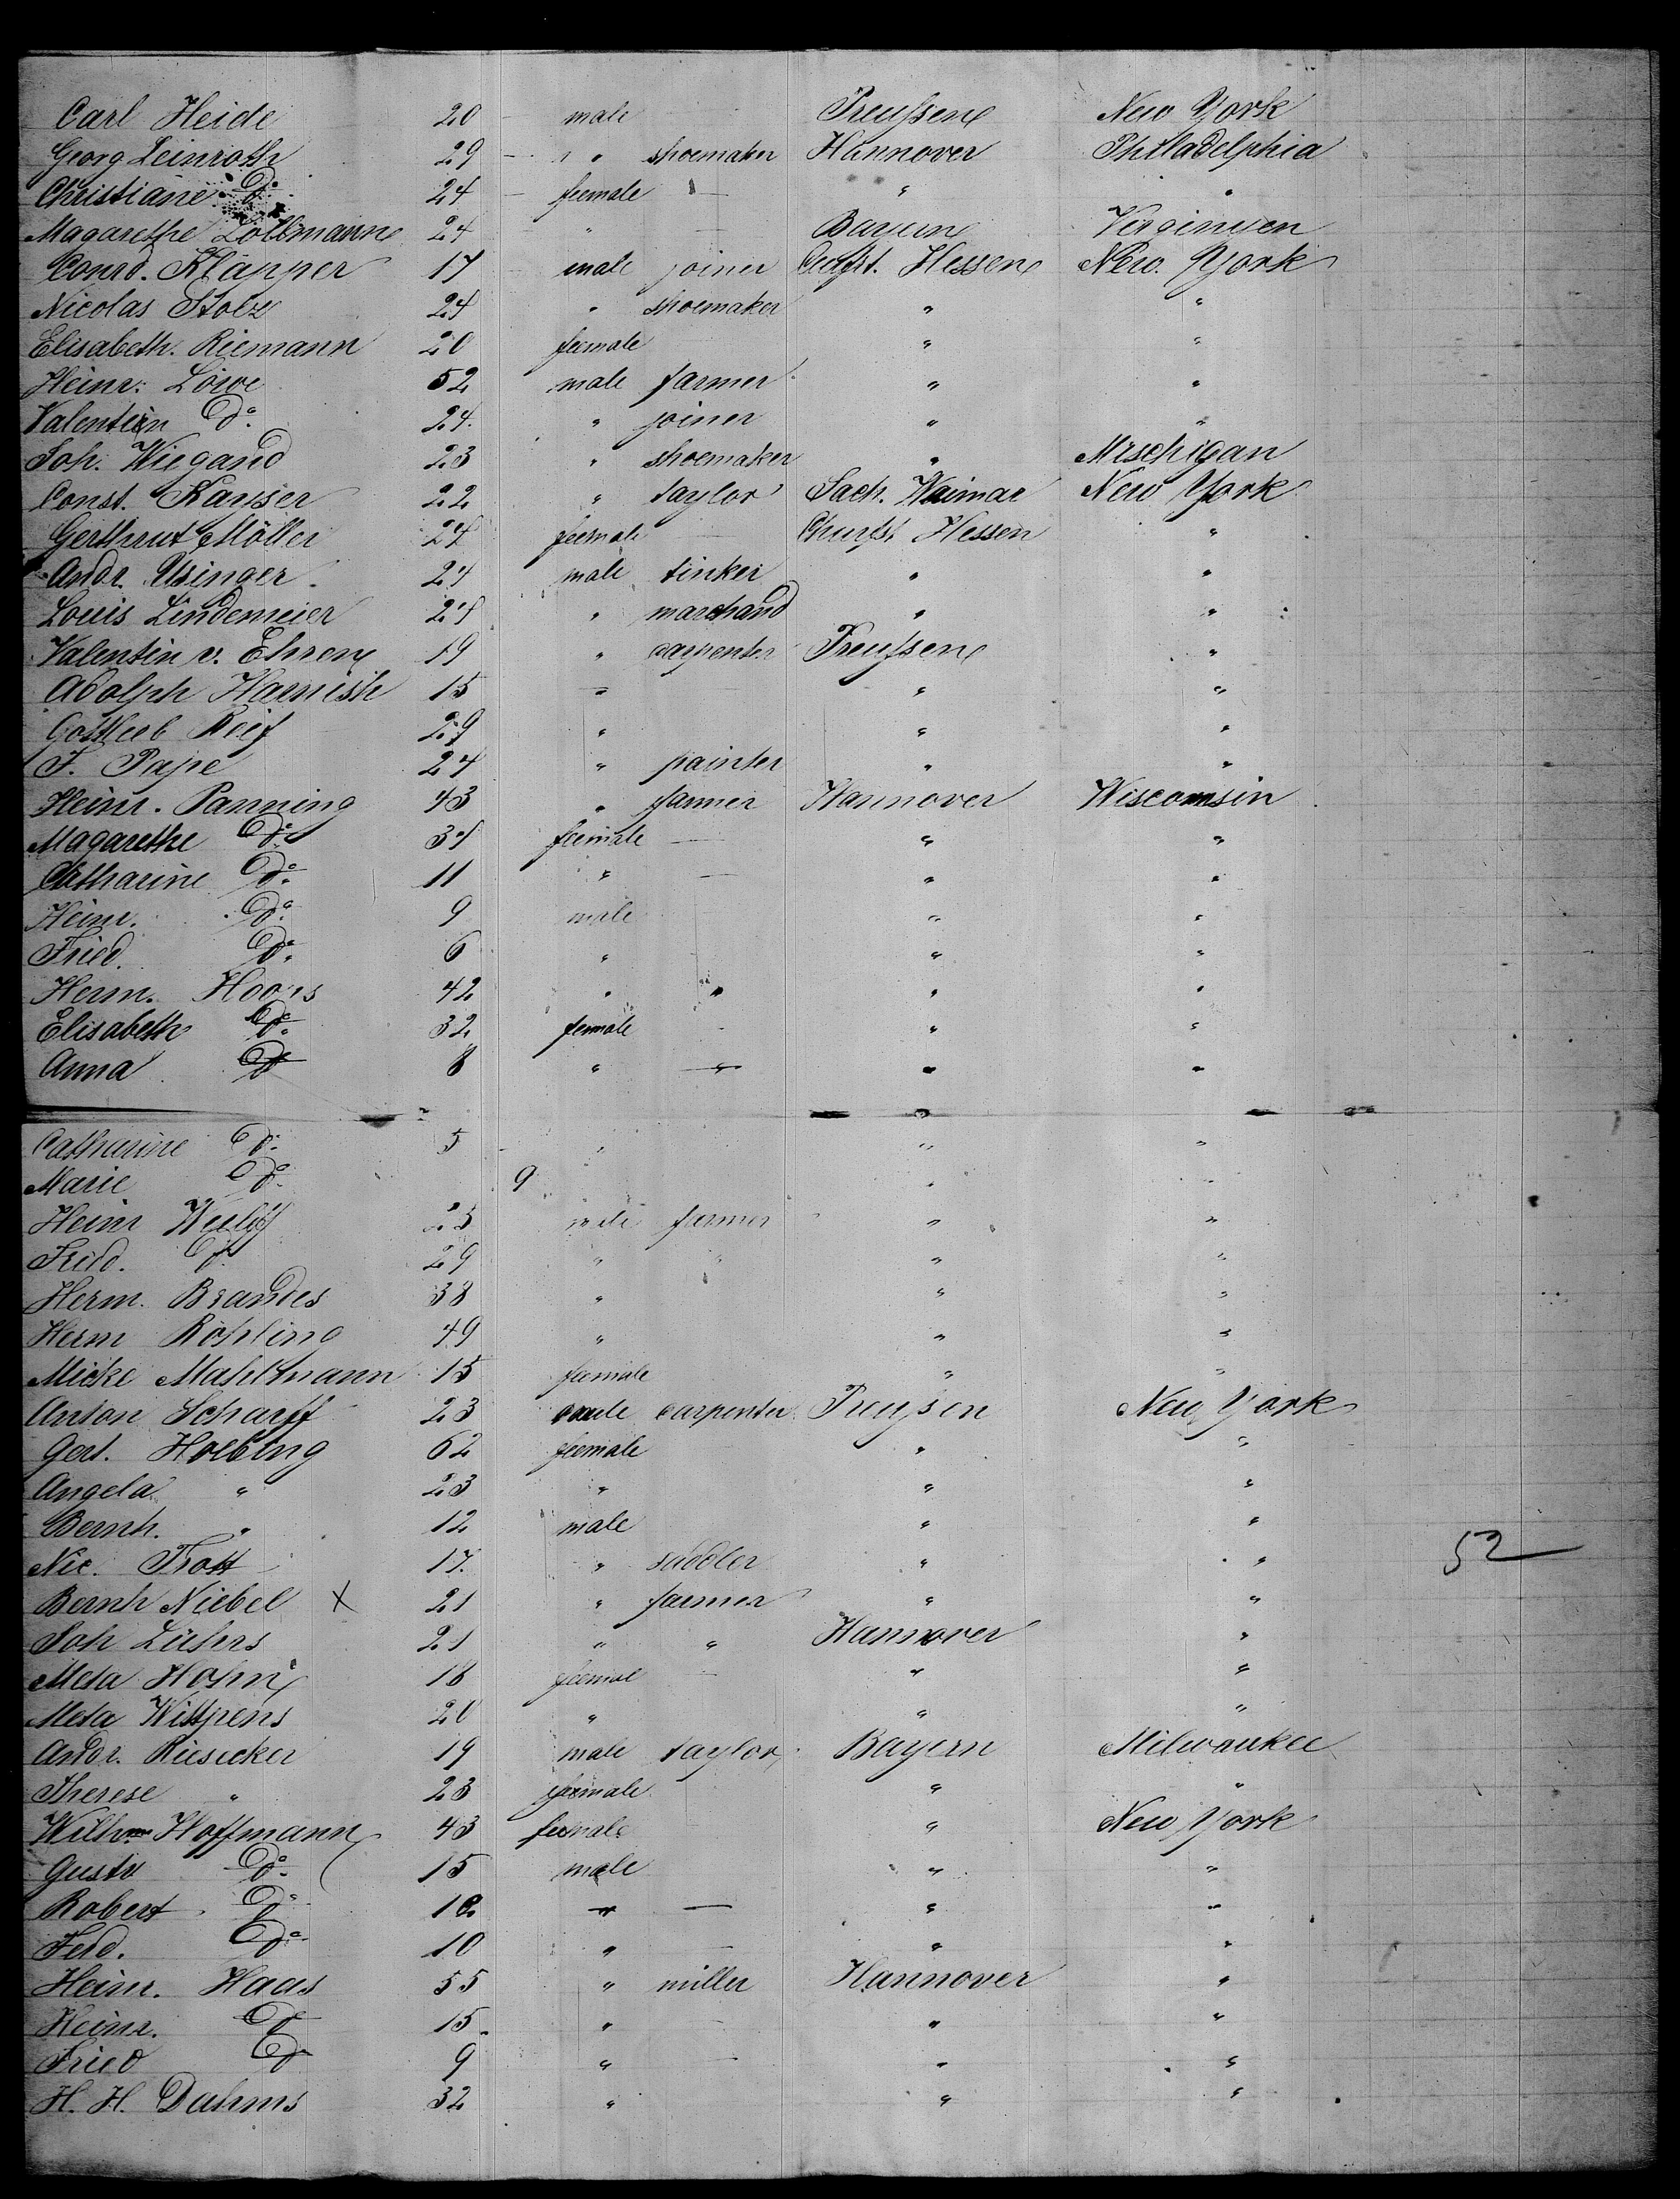 Carl Heide 20 male Preußen New York
Georg Leinroth 29 " shoemaker Hannover Philadelphia
Christiane Do. 24 feemale — " "
Magarethe Lollmann 24 " — Bayern Virginien
Conrd. Klapper 17 male joiner Churfst. Hessen New York
Nicolas Stolz 24 " shoemaker " "
Elisabeth. Riemann 20 feemale " "
Heinr. Löwe 52 male farmer " "
Valentin Do. 24. " joiner " "
Joh. Wiegand 23 " shoemaker " Mischigan
Const. Kayser 22 " taylor Sach. Weimar New York
Gerthrut Möller 24 feemale — Churfst. Hessen "
Andr. Usinger 24 male tinker " "
Louis Lindemeier 24 " marchand " "
Valentin v. Ehren 19 " carpenter Preußen "
Adolph Harnish 15 " — " "
Gottlieb Reif 29 " " "
F. Pape 24 " painter " "
Heinr. Panning 43 " farmer Hannover Wisconsin
Magarethe Do. 34 feemale — " "
Catharine Do. 11 " — " "
Heinr. Do. 9 male " "
Fried. Do. 6 " " "
Herm. 42 " " " "
Elisabeth Do. 32 female " "
Anna Do 8 " — " "
Catharine Do. 5 " " "
Marie Do. 9 " "
Heinr 25 male farmer " "
Fried. Do. 29 " " " "
Herm. Brandes 38 " " "
Herm Röhling 49 " " "
Micke Mahlmann 15 feemale " "
Anton Scharff 23 male carpenter Preußen New York
Gert. Holbing 62 feemale " "
Angela " 23 " " "
Bernh. " 12 male " "
Nic. Trott 17. " saddler " " 52
Bernh Niebel X 21 " farmer " "
Joh Lührs 21 " " Hannover "
Meta Hohn 18 feemal — " "
Meta Wittpens 20 " " "
Andr. Riesecker 19 male taylor Bayern Milwaukee
Therese " 23 feemale " "
Wilh. Hoffmann 43 feemale " New York
Gustv Do. 15 male " "
Robert Do. 12 " — " "
Ferd. Do. 10 " — " "
Heinr. Haas 55 " miller Hannover "
Heinr. Do 15. " — " "
Fried Do 9 " — " "
H. H. Dahms 32 " " "